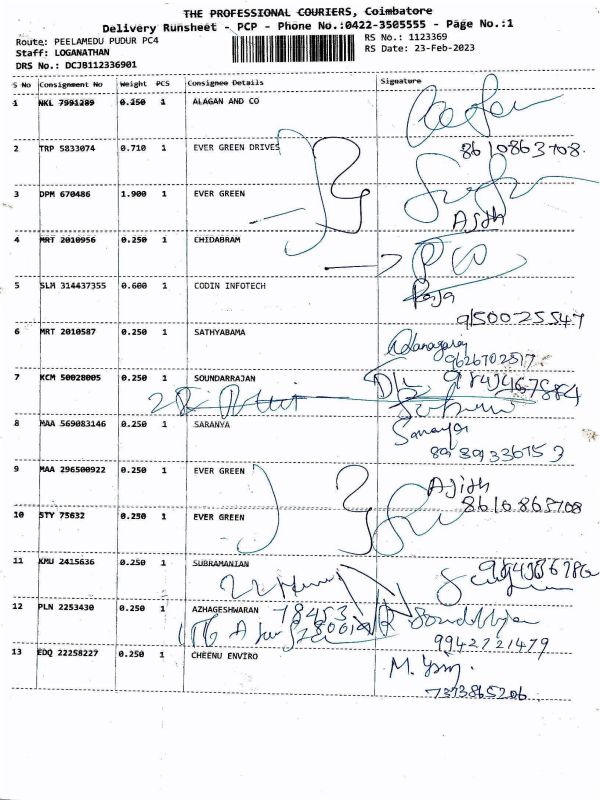 THE PROFESSIONAL COURIERS, Coimbatore
Delivery Runsheet - PCP - Phone No.:0422-3505555 - Page No.:1
Route: PEELAMEDU PUDUR PC4
RS No.: 1123369
Staff: LOGANATHAN
RS Date: 23-Feb-2023
DRS No.: DCJB112336901
S No Consignment No Weight PCS Consignee Details Signature
1 NKL 7991289 0.250 1 ALAGAN AND CO
8610863708
2 TRP 5833074 0.710 1 EVER GREEN DRIVES
3 DPM 670486 1.900 1 EVER GREEN
Ajith
4 MRT 2010956 0.250 1 CHIDABRAM
5 SLM 314437355 0.600 1 CODIN INFOTECH
Raja
9150025547
6 MRT 2010587 0.250 1 SATHYABAMA
9626702517
7 KCM 50028005 0.250 1 SOUNDARRAJAN
8 MAA 569083146 0.250 1 SARANYA
Saranya
9 MAA 296500922 0.250 1 EVER GREEN
Ajith
8610863708
10 STY 75632 0.250 1 EVER GREEN
11 KMU 2415636 0.250 1 SUBRAMANIAN
12 PLN 2253430 0.250 1 AZHAGESHWARAN
9942721479
13 EDQ 22258227 0.250 1 CHEENU ENVIRO
7373865206